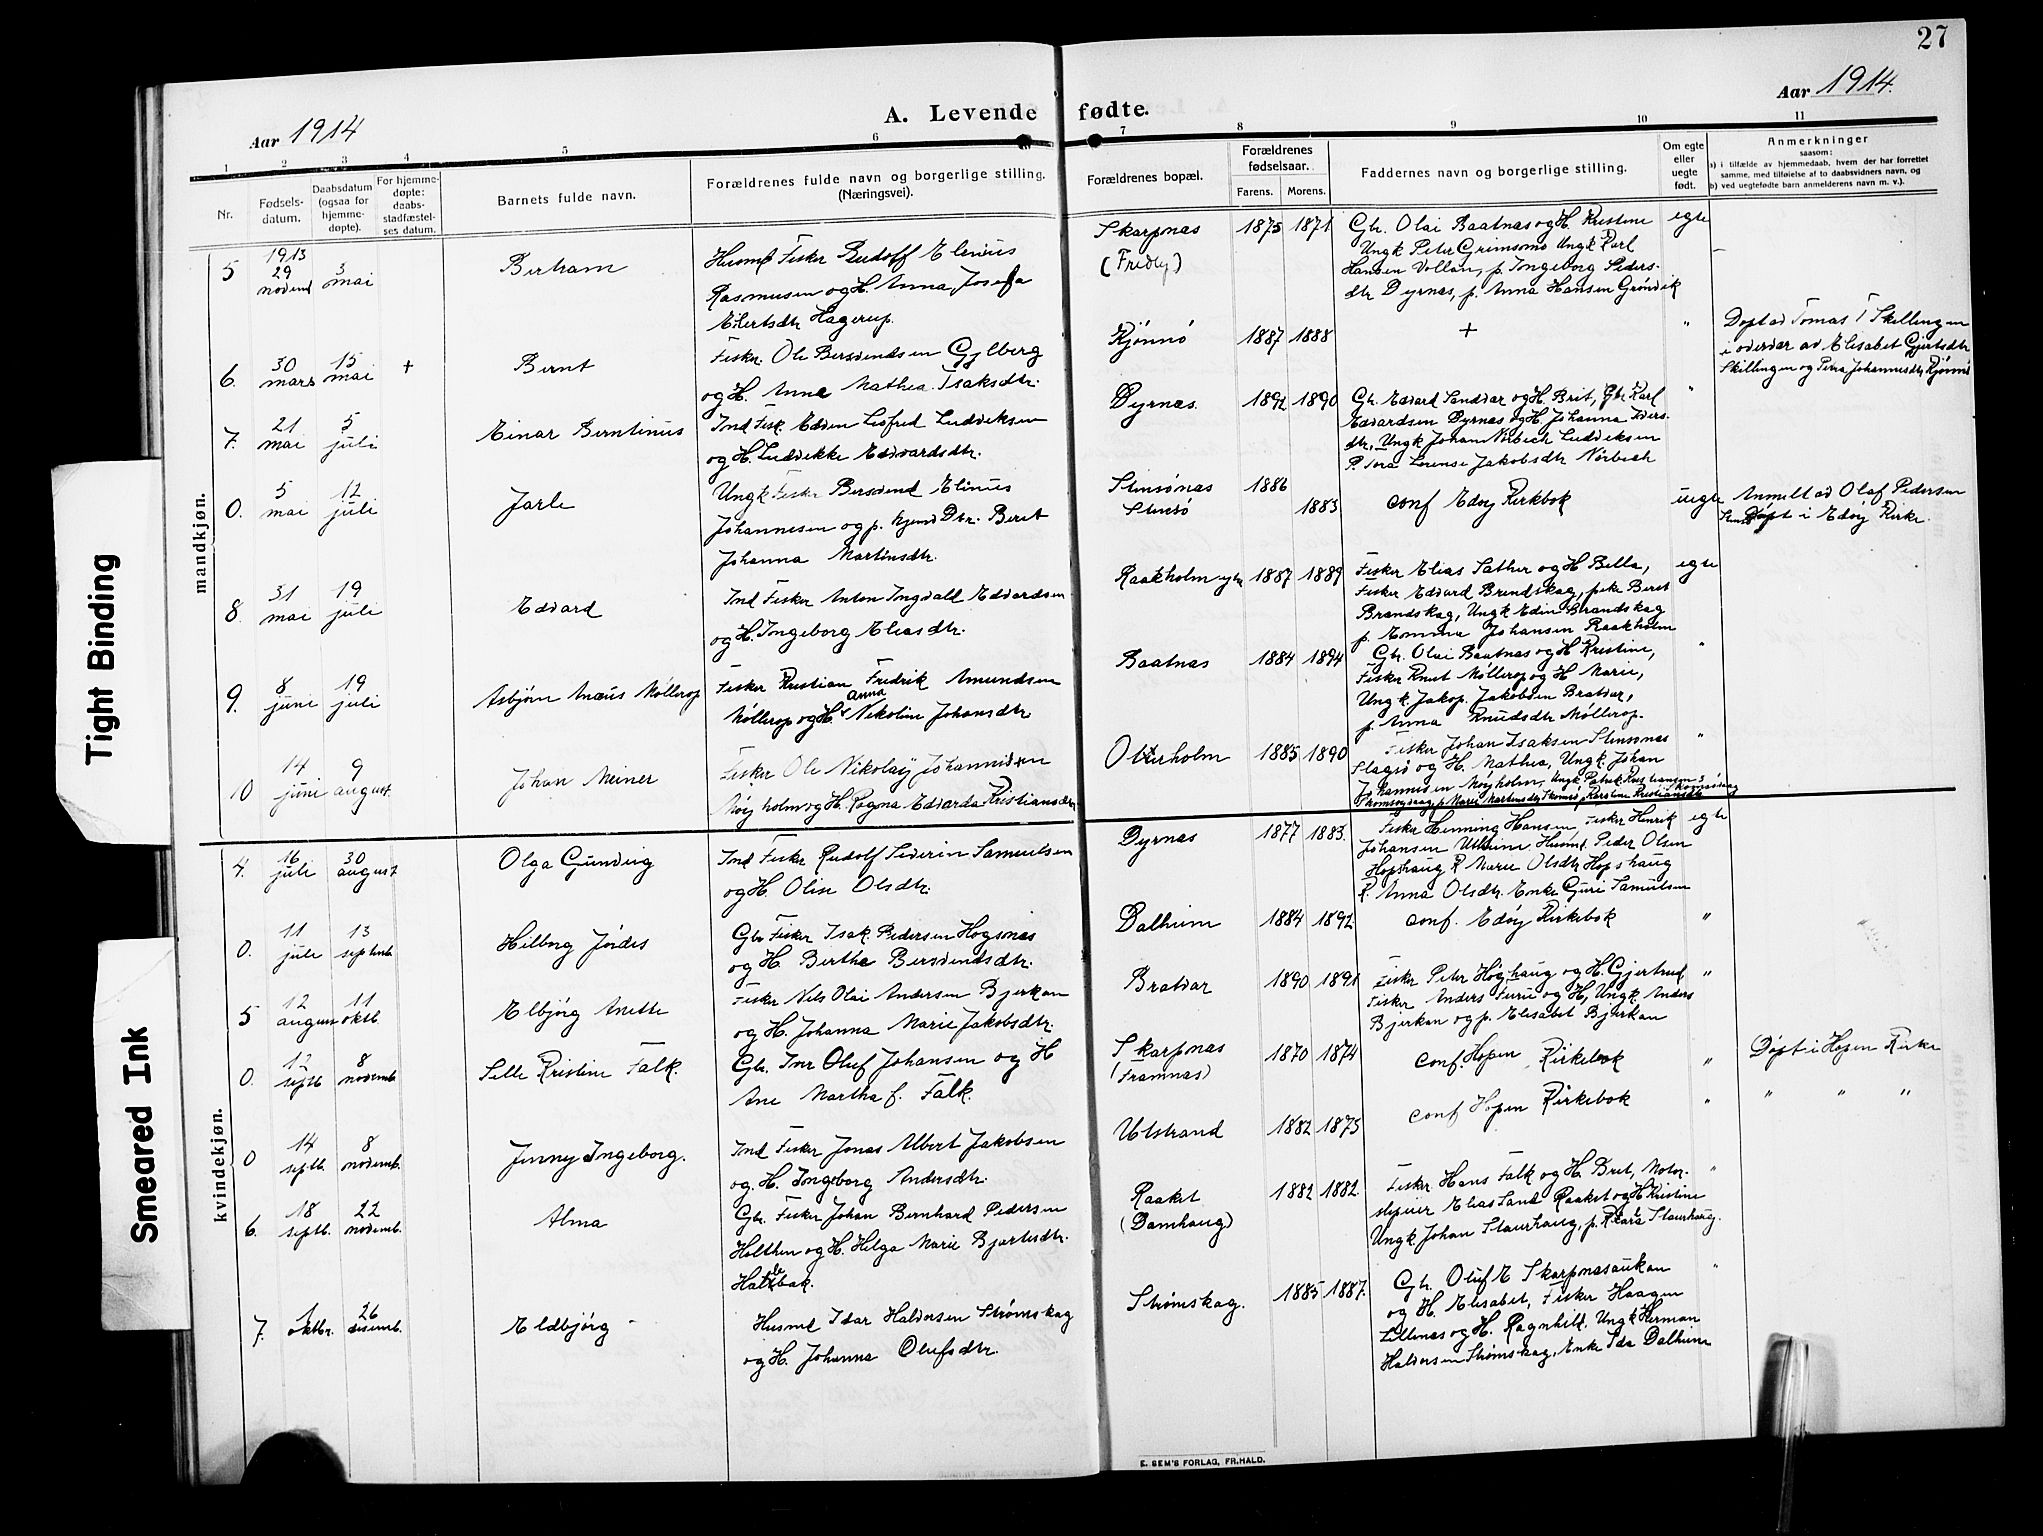 27
Aar 1914
A. Levende fødte.
Aar 1914.
1 2 3 4 5 6 7 8 9 10 11
Nr.
Fødsels-
datum.
Daabsdatum
(ogsaa for
hjemme-
døpte).
For hjemme-
døpte:
daabs-
stadfæstel-
ses datum.
Barnets fulde navn.
Forældrenes fulde navn og borgerlige stilling.
(Næringsvei).
Forældrenes bopæl.
Forældrenes
fødselsaar.
Farens. Morens.
Faddernes navn og borgerlige stilling.
Om egte
eller
uegte
født.
Anmerkninger
saasom:
a) i tilfælde av hjemmedaab, hvem der har forrettet
samme, med tilføielse af to daabsvidners navn, og
b) ved uegtefødte barn anmelderens navn m. v.).
mandkjøn.
5
1913
29
novemb
3
mai
Husmd Fisker Rudolf Elenius
Rasmusen og H. Anna Josefa
Eilertsdtr Hagerup.
Skarpnas
1875 1871
Gbr. Olai Baatnas og H. Kristine
Ungk Peter Grimsmo Ungk Karl
Hansen Vollan, p. Ingeborg Peders-
dtr Dyrnes, p. Anna Hansen Grønvik
egte
6.
30
mars
15
mai
+
Bernt
Fisker Ole Bersvendsen Gylberg
og H. Anne Mathea Isaksdtr.
Kjønnø
1887 1888
+
"
Døpt av Tomas T Skillingen
i overvær av Elisabet Gjertsdtr
Skillingen og Petra Johannesdtr Kjønnø
7.
21
mai
5
juli
Einar Berntinus
Ind Fisk. Edvin Leofred Ludviksen
og H. Ludvikke Edvardsdtr.
Dyrnes.
1892 1890
Gbr. Edvard Sandvar og H. Brit, Gbr Karl
Edvardsen Dyrnes og H. Johanna Ivers-
dtr, Ungk Johan Nørbech Ludviksen
P. Tora Lorense Jakobsdtr Nørbech
"
0.
5
mai
12
juli
Jarle
Ungk Fisker Bersvend Elinus
Johannesen og p. hjemd Dtr. Beret
Johanna Martinsdtr.
Stensønas
Stensø
1886
1883
conf Edøy Kirkbok
uegte
Anmelt av Olaf Pedersen
Døpt i Edøy Kirke.
8.
31
mai
19
juli
Edvard
Ind Fisker Anton Ingvald Edvardsen
og H. Ingeborg Eliasdtr.
Raakholm
1887 1889
Fisker Elias Sather og H Bella,
Fisker Edvard Brendskag, pike Beret
Brandskag, Ungk Edvin Brandskag
p. Emma Johansen Raakholm
egte
9.
8
juni
19
juli
Asbjørn Anæus Møllerop
Fisker Kristian Fredrik Amundsen
Møllerop og H. Anna Nikoline Johansdtr
Baatnas
1884 1894
Gbr. Olai Baatnas og H Kristine,
Fisker Knut Møllerop og H Marie,
Ungk Jakop Jakobsen Bratvar,
p. Anna Knudsdtr Møllerop.
"
10
14
juni
9
august.
Johan Meiner
Fisker Ole Nikolay Johannesen
Møyholm og H. Ragna Edvarda Kristiansdtr
Otterholm
1885 1890
Fisker Johan Isaksen Stensønas
Slagsø og H. Mathea, Ungk Johan
Johannesen Møyholm, Ungk Patrik Kristiansen
kvindekjøn.
4.
16
juli
30
august
Olga Gunvig
Ind Fisker Rudolf Severin Samuelsen
og H. Oline Olsdtr.
Dyrnas
1877 1883.
Fisker Henning Hansen, Fisker Henrik
Johansen Utheim, Husmd. Peder Olsen
Hopshaug P Marie Olsdtr Hopshaug
P. Anna Olsdtr. Enke Guri Samuelsen
egte
0.
11
juli
13
septemb.
Hilborg Jørdis
Gbr Fisker Isak Pedersen Hogsnes
og H. Berthe Bersvendsdtr.
Dalheim
1884 1892
conf. Edøy Kirkebok
"
5
12
august
11
oktb.
Elbjørg Anette
Fisker Nils Olai Andersen Bjerkan
og H. Johanna Marie Jakobsdtr.
Bratvar
1890 1891
Fisker Peter Høghaug og H. Gjertrud
Fisker Anders Furu og H, Ungk. Anders
Bjerkan og p. Elisabet Bjerkan
"
0.
12
septb
8
novemb.
Sille Kristine Falk.
Gbr. Inr Oluf Johansen og H
Ane Martha f. Falk.
Skarpnas
(Framnas)
1870 1874
conf. Hopen Kirkebok
"
Døpt i Hopen Kirke
0
14
septb.
8
novemb.
Jenny Ingeborg.
Ind Fisker Jonas Albert Jakobsen
og H. Ingeborg Andersdtr.
Utstrand
1882 1875
conf Hopen Kirkebok
" " " "
6.
18
septb.
22
novemb.
Alma
Gbr. Fisker Johan Bernhard Pedersen
Holthen og H. Helga Marie Bjartesdtr.
Raaket
(Damhaug)
1882 1882.
Fisker Hans Falk og H. Bret, Motor-
skipper Elias Sand Raaket og H Kristine
Ungk. Johan Staurhaug, p. Klara Staurhaug.
"
7.
1
oktbr.
26
desemb.
Eldbjørg
Husmd Idar Haldorsen Strømskag
og H. Johanna Olufsdtr.
Strømskag.
1885 1887.
Gbr. Oluf E Skarpnasaukan
og H. Elisabet, Fisker Haagen
Lillenas og H. Ragnhild. Ungk Herman
Haldorsen Strømskag, Enke Ida Dalheim
"
E. SEM'S FORLAG, FR.HALD.
Tight Binding
Smeared Ink